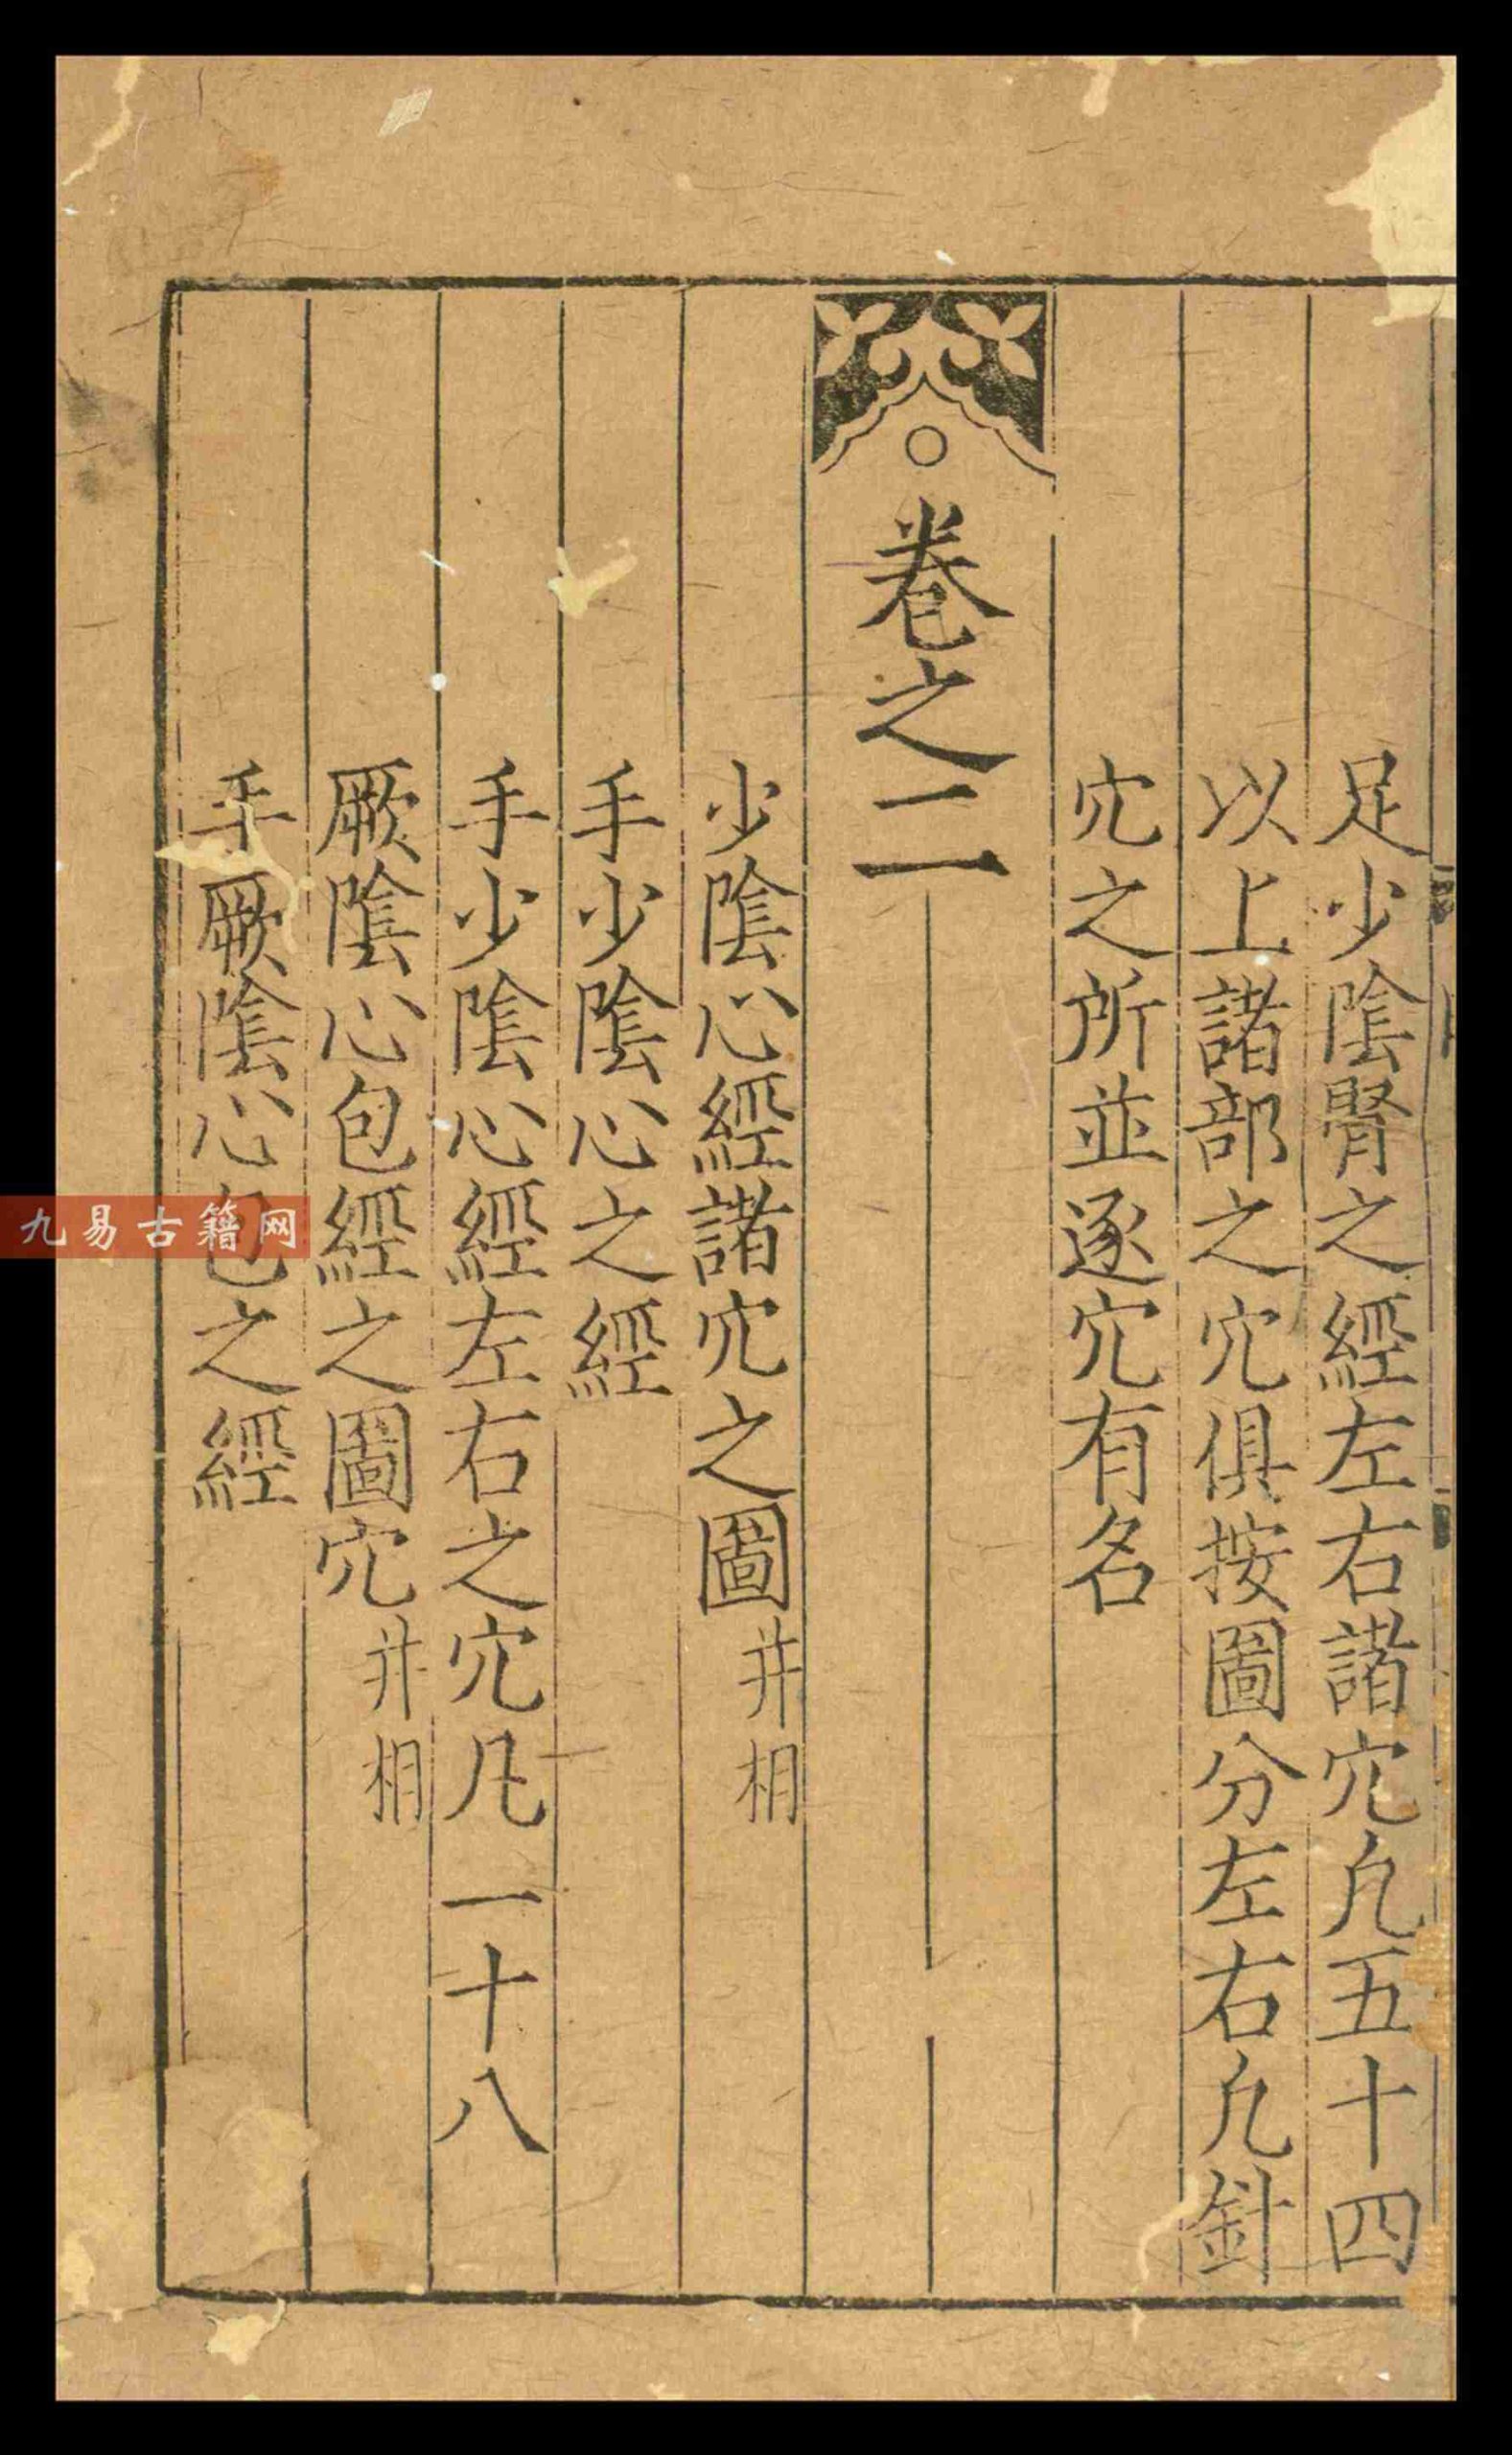 足少陰腎之經左右諸穴凡五十四
以上諸部之穴俱按圖分左右凡針
穴之所並逐穴有名
○卷之二
少陰心經諸穴之圖并相
手少陰心之經
手少陰心經左右之穴凡一十八
厥陰心包經之圖穴并相
手厥陰心包之經
九易古籍网